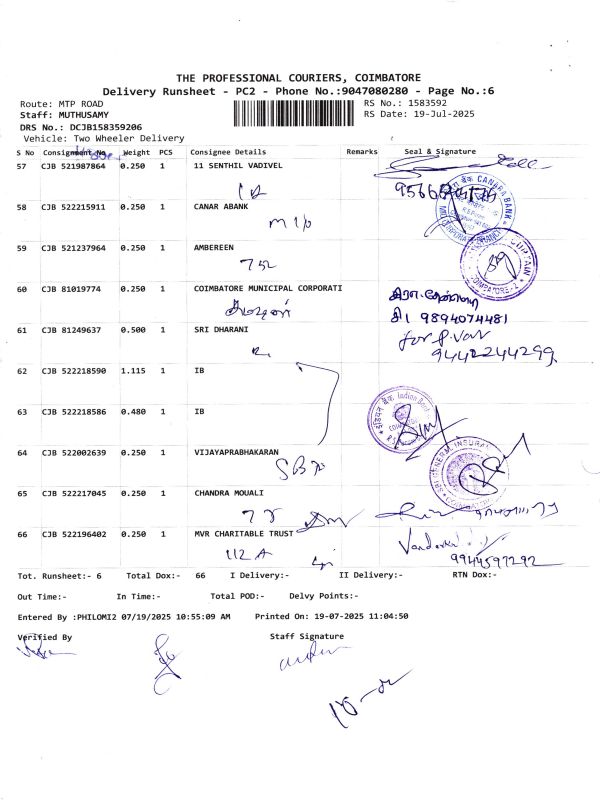 THE PROFESSIONAL COURIERS, COIMBATORE
Delivery Runsheet - PC2 - Phone No.:9047080280 - Page No.:6
Route: MTP ROAD RS No.: 1583592
Staff: MUTHUSAMY RS Date: 19-Jul-2025
DRS No.: DCJB158359206
Vehicle: Two Wheeler Delivery
S No Consignment No Weight PCS Consignee Details Remarks Seal & Signature
57 CJB 521987864 0.250 1 11 SENTHIL VADIVEL
58 CJB 522215911 0.250 1 CANAR ABANK
CANARA BANK
59 CJB 521237964 0.250 1 AMBEREEN
752
60 CJB 81019774 0.250 1 COIMBATORE MUNICIPAL CORPORATI
9894074481
61 CJB 81249637 0.500 1 SRI DHARANI
for P. Van
9442244299
62 CJB 522218590 1.115 1 IB
63 CJB 522218586 0.480 1 IB
Indian Bank
64 CJB 522002639 0.250 1 VIJAYAPRABHAKARAN
65 CJB 522217045 0.250 1 CHANDRA MOUALI
66 CJB 522196402 0.250 1 MVR CHARITABLE TRUST
112 A
9944597292
Tot. Runsheet:- 6 Total Dox:- 66 I Delivery:- II Delivery:- RTN Dox:-
Out Time:- In Time:- Total POD:- Delvy Points:-
Entered By :PHILOMI2 07/19/2025 10:55:09 AM Printed On: 19-07-2025 11:04:50
Verified By Staff Signature